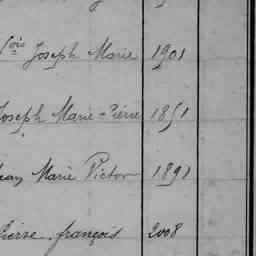 fois Joseph Marie 1901
Joseph Marie-Pierre 1851
Jean Marie Victor 1891
Pierre François 2008